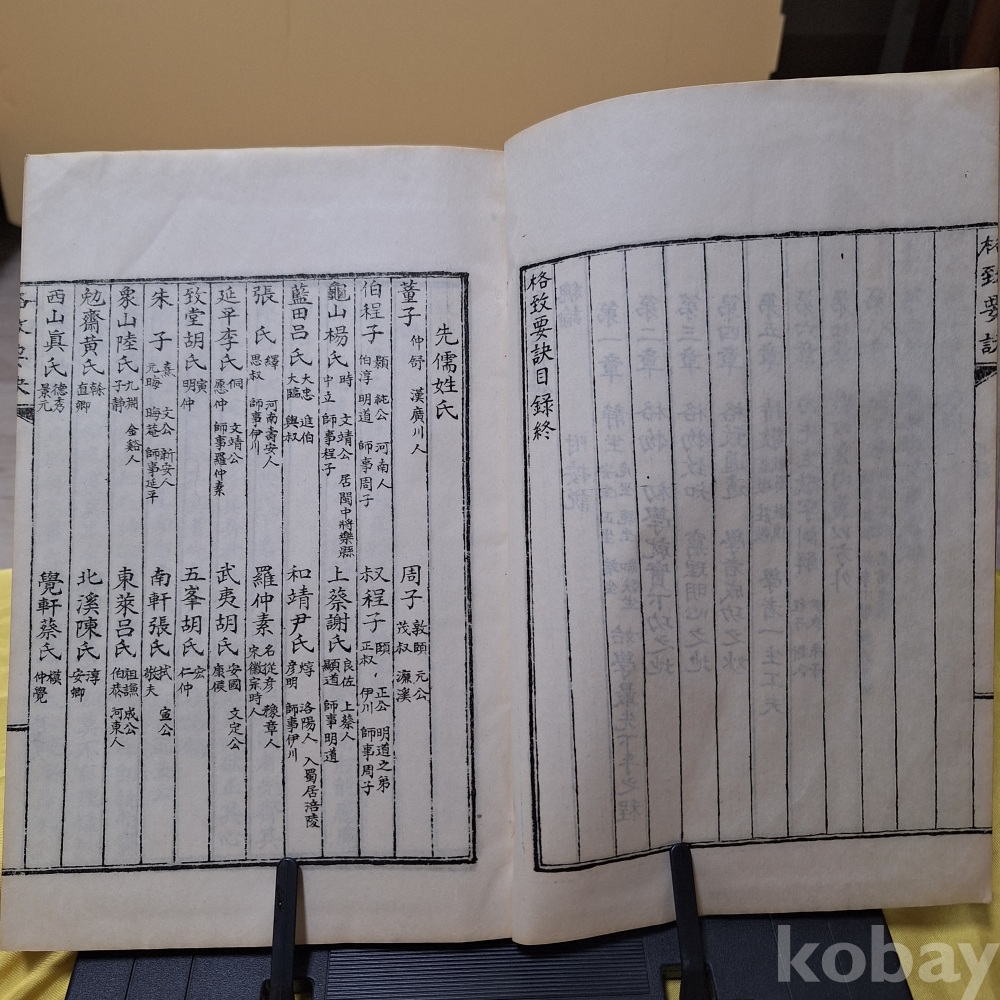 格致要訣
格致要訣目録終
先儒姓氏
董子 仲舒 漢廣川人
周子 敦頤 茂叔 元公 濂溪
伯程子 顥 伯淳 純公 明道 河南人 師事周子
叔程子 頤 正叔 正公 伊川 明道之弟 師事周子
龜山楊氏 時 中立 文靖公 師事程子 居閩中將樂縣
上蔡謝氏 良佐 顯道 上蔡人 師事明道
藍田呂氏 大忠 進伯 大臨 與叔
和靖尹氏 焞 彦明 洛陽人 師事伊川 入蜀居涪陵
張氏 繹 思叔 河南壽安人 師事伊川
羅仲素 名從彦 豫章人 宋徽宗時人
延平李氏 侗 愿仲 文靖公 師事羅仲素
武夷胡氏 安國 康侯 文定公
致堂胡氏 寅 明仲
五峯胡氏 宏 仁仲
朱子 熹 元晦 文公 晦菴 新安人 師事延平
南軒張氏 栻 敬夫 宣公
象山陸氏 九淵 子靜 金谿人
東萊呂氏 祖謙 伯恭 成公 河東人
勉齋黃氏 榦 直卿
北溪陳氏 淳 安卿
西山真氏 德秀 景元
覺軒蔡氏 模 仲覺
kobay